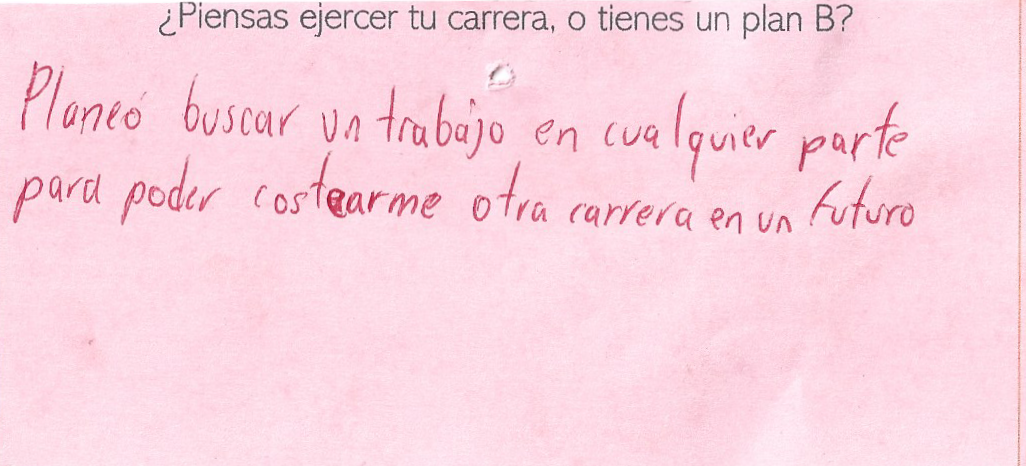 ¿Piensas ejercer tu carrera, o tienes un plan B?
Planeó buscar un trabajo en cualquier parte
para poder costearme otra carrera en un futuro